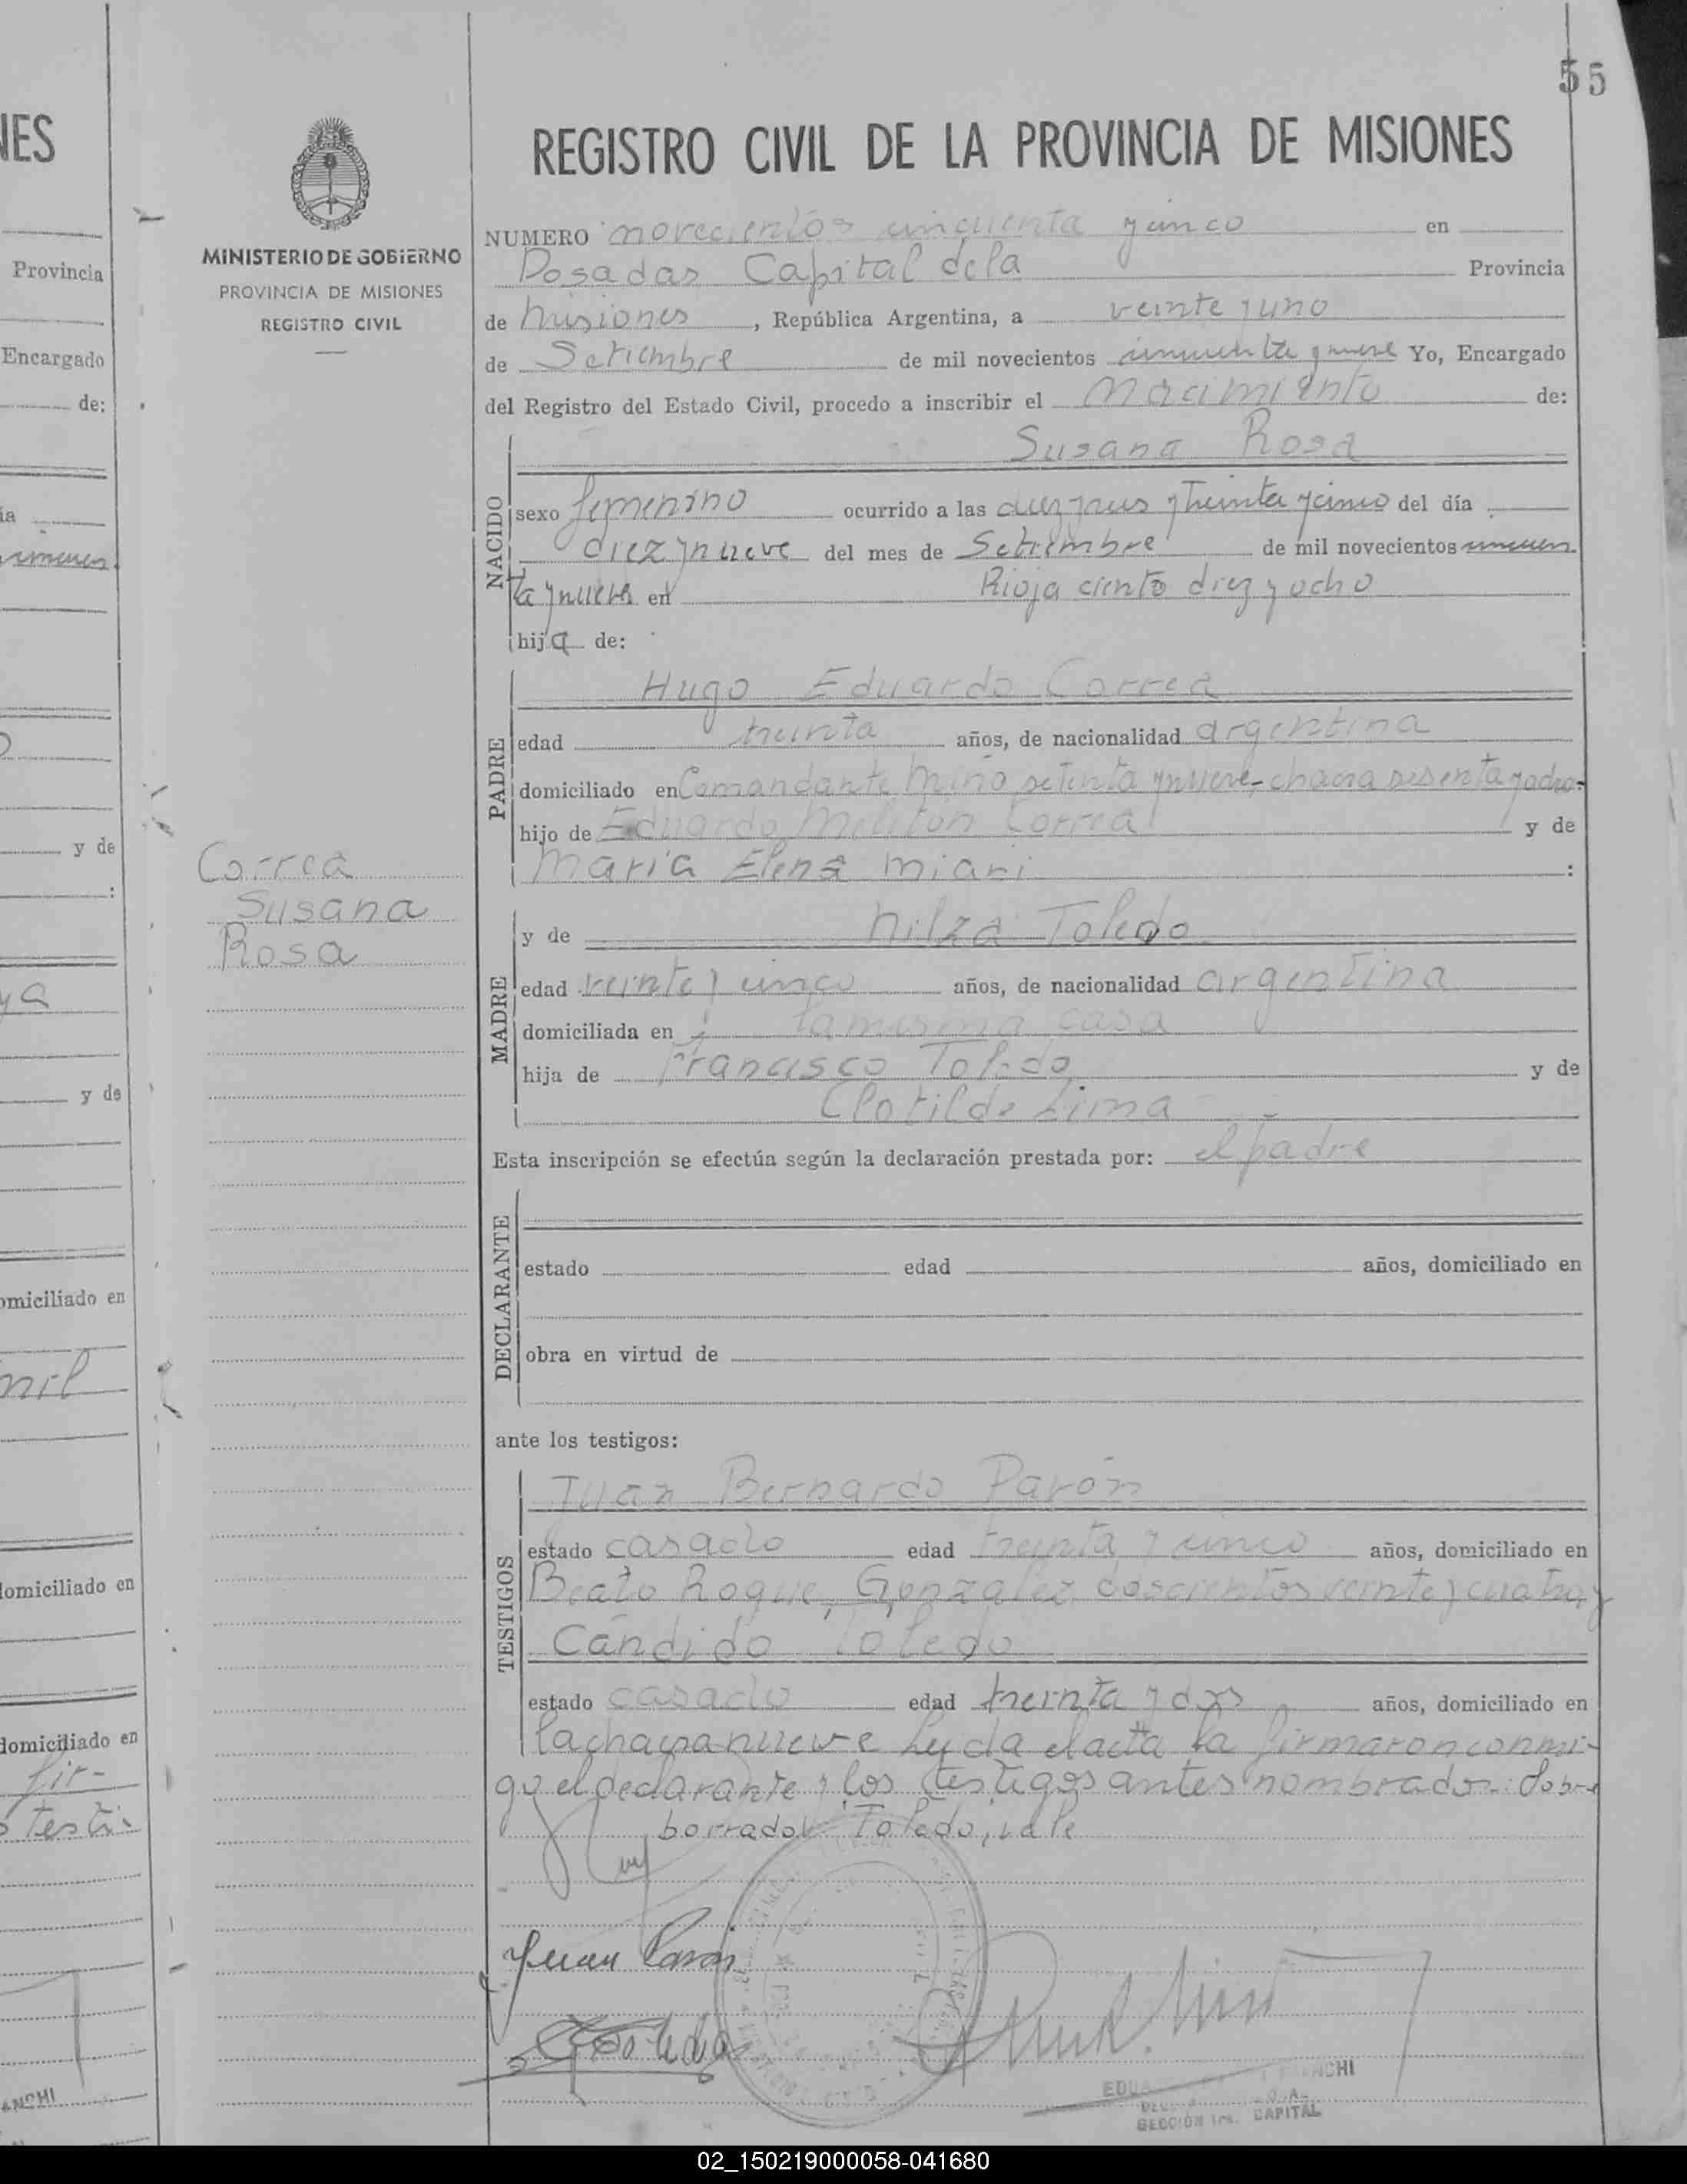 55
REGISTRO CIVIL DE LA PROVINCIA DE MISIONES
MINISTERIO DE GOBIERNO
PROVINCIA DE MISIONES
REGISTRO CIVIL
NUMERO novecientos cincuenta y cinco en
Posadas Capital de la Provincia
de Misiones, República Argentina, a veinte y uno
de Setiembre de mil novecientos cincuenta y nueve Yo, Encargado
del Registro del Estado Civil, procedo a inscribir el Nacimiento de:
NACIDO
Susana Rosa
sexo femenino ocurrido a las diez y seis y treinta y cinco del día
diez y nueve del mes de Setiembre de mil novecientos cincuen
ta y nueve en Rioja ciento diez y ocho
hija de:
PADRE
Hugo Eduardo Correa
edad treinta años, de nacionalidad argentina
domiciliado en Comandante Miño setenta y nueve, chacra sesenta y ocho
hijo de Eduardo Melitón Correa y de
Maria Elena Miani :
Correa
Susana
Rosa
MADRE
y de Nilza Toledo
edad veinte y cinco años, de nacionalidad argentina
domiciliada en la misma casa
hija de Francisco Toledo y de
Clotilde Lima
Esta inscripción se efectúa según la declaración prestada por: el padre
DECLARANTE
estado edad años, domiciliado en
obra en virtud de
ante los testigos:
TESTIGOS
Juan Bernardo Pavón
estado casado edad treinta y cinco años, domiciliado en
Beato Roque Gonzalez doscientos veinte y cuatro, y
Cándido Toledo
estado casado edad treinta y dos años, domiciliado en
la chacra nueve Leyda el acta la firmaron conmi-
go el declarante y los testigos antes nombrados. Sobre
borrado: Toledo, vale
Juan Pavon
Toledo
SECCIÓN 1ra. CAPITAL
02_150219000058-041680